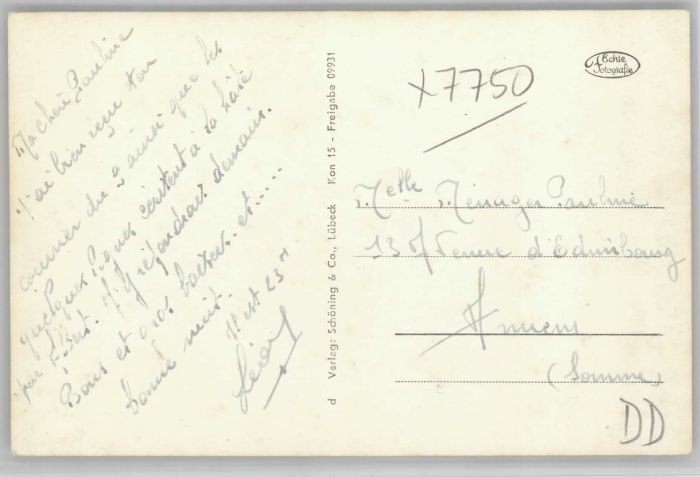 Ma chère Pauline
J'ai bien reçu ton
courrier du 9 ainsi que les
quelques lignes écritent à la hâte
par J'y répondrai demain.
Bons et gros baisers et.....
bonne nuit.
Il est 23H
Léon
d Verlag: Schöning & Co., Lübeck Kon 15 - Freigabe 09931
Echte
Fotografie
x7750
Melle Pauline
13 Avenue d'Edimbourg
Amiens
(Somme)
DD